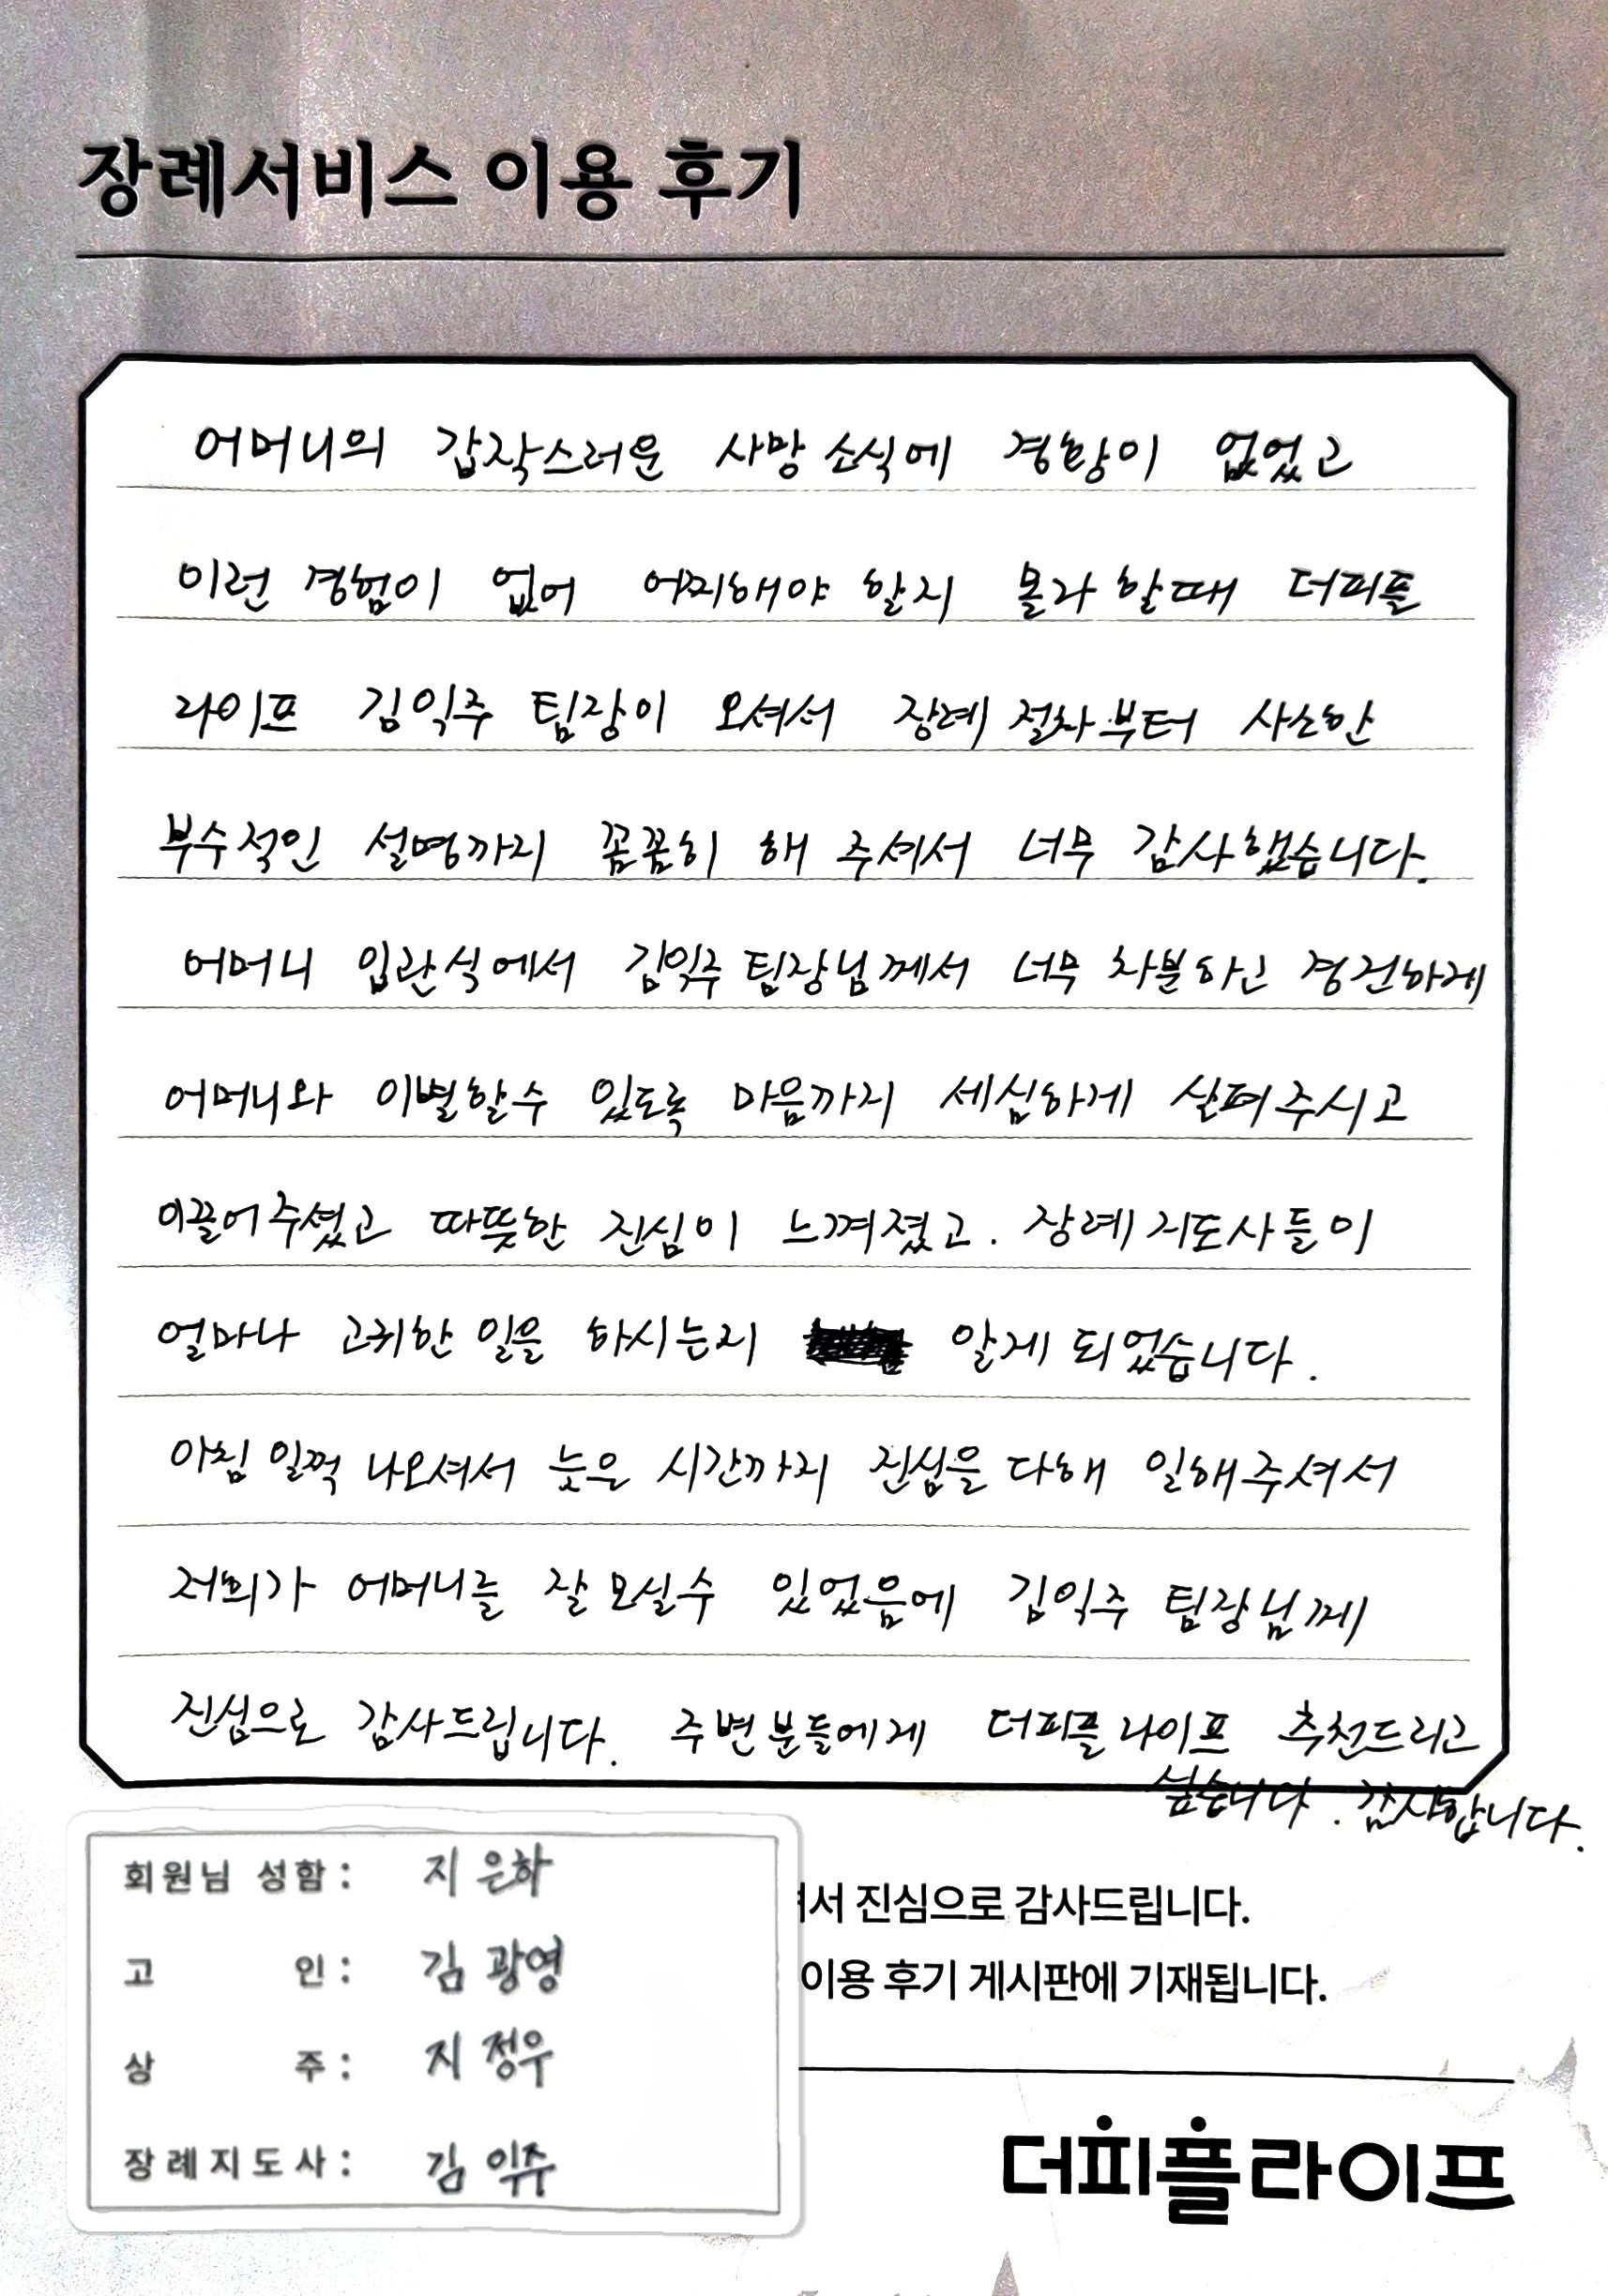 장례서비스 이용 후기
어머니의 갑작스러운 사망 소식에 경황이 없었고
이런 경험이 없어 어찌해야 할지 몰라 할때 더피플
라이프 김익주 팀장이 오셔서 장례 절차부터 사소한
부수적인 설명까지 꼼꼼히 해 주셔서 너무 감사했습니다.
어머니 입관식에서 김익주 팀장님께서 너무 차분하고 경건하게
어머니와 이별할수 있도록 마음까지 세심하게 살펴주시고
이끌어주셨고 따뜻한 진심이 느껴졌고. 장례지도사들이
얼마나 고귀한 일을 하시는지 알게 되었습니다.
아침 일찍 나오셔서 늦은 시간까지 진심을 다해 일해주셔서
저희가 어머니를 잘 모실수 있었음에 김익주 팀장님께
진심으로 감사드립니다. 주변분들에게 더피플라이프 추천드리고
싶습니다. 감사합니다.
회원님 성함: 지은하
고 인: 김광영
상 주: 지정우
장례지도사: 김익주
서 진심으로 감사드립니다.
이용 후기 게시판에 기재됩니다.
더피플라이프